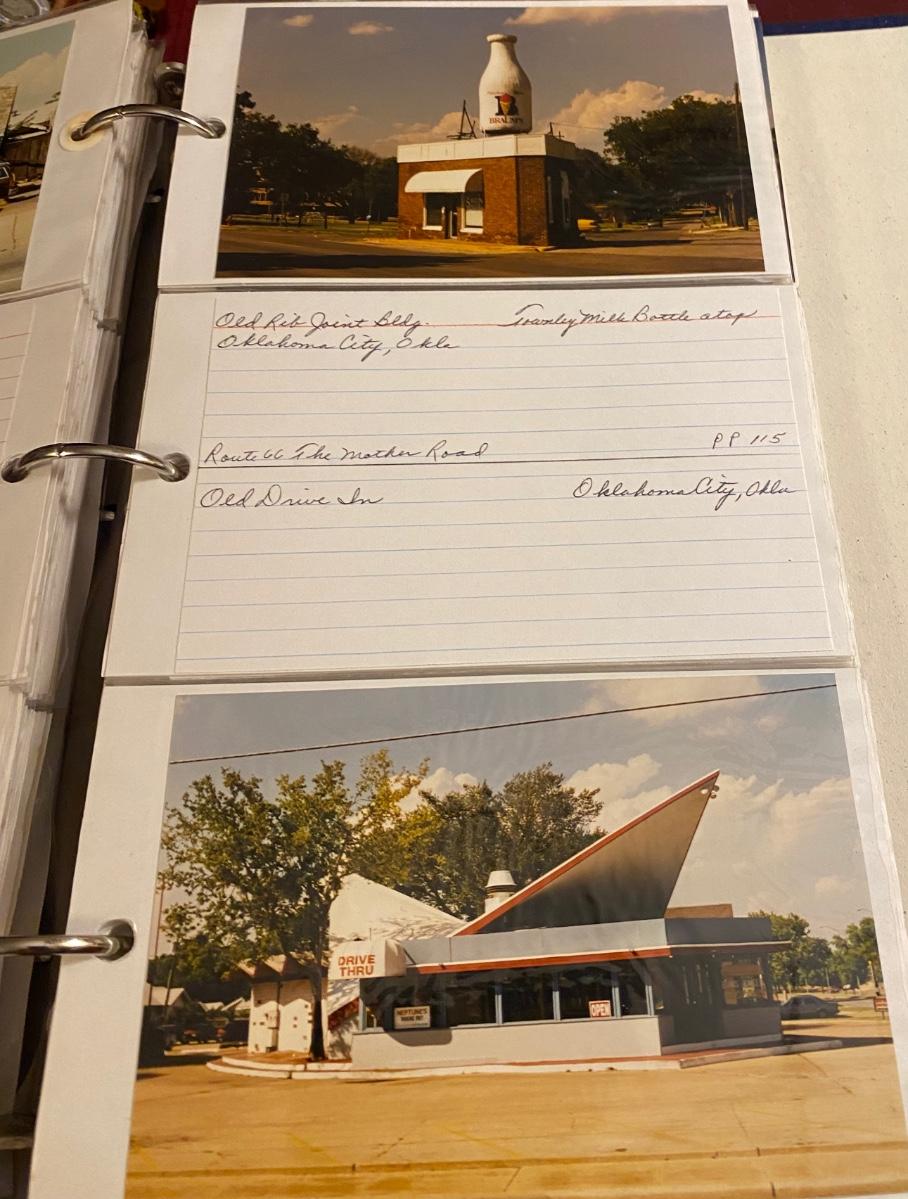 BRAUM'S
Old Rib Joint Bldg. Townley Milk Bottle atop
Oklahoma City, Okla
Route 66 The Mother Road PP 115
Old Drive In Oklahoma City, Okla
DRIVE
THRU
NEPTUNE'S
OPEN